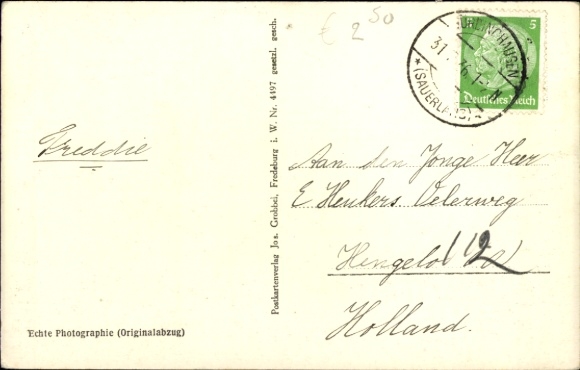 € 2 50
5
Deutsches Reich
31.
(SAUERLAND)
Freddie
Aan den Jonge Heer
E Heukers Oelerweg
Hengelo (O)
12
Holland.
Echte Photographie (Originalabzug)
Postkartenverlag Jos. Grobbel, Fredeburg i. W. Nr. 4497 gesetzl. gesch.